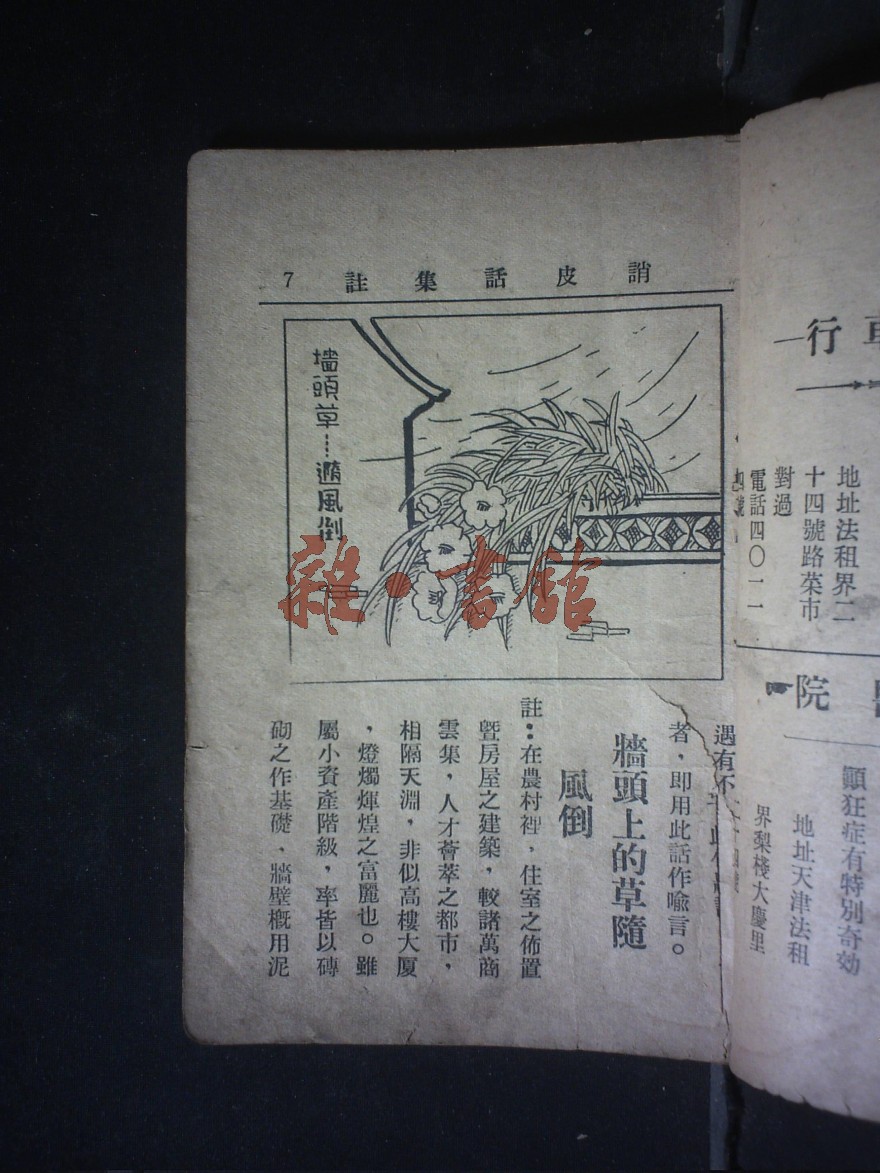 誚皮話集註 7
墙頭草⋯⋯遖風倒
雜·書舘
遇有不
者，即用此話作喩言。
牆頭上的草隨
風倒
註：在農村裡，住室之佈置
曁房屋之建築，較諸萬商
雲集，人才薈萃之都市，
相隔天淵，非似高樓大厦
，燈燭煇煌之富麗也。雖
屬小資產階級，率皆以磚
砌之作基礎，牆壁槪用泥
行
地址法租界二
十四號路菜市
對過
電話四〇一一
院
顚狂症有特別奇効
地址天津法租
界梨棧大慶里